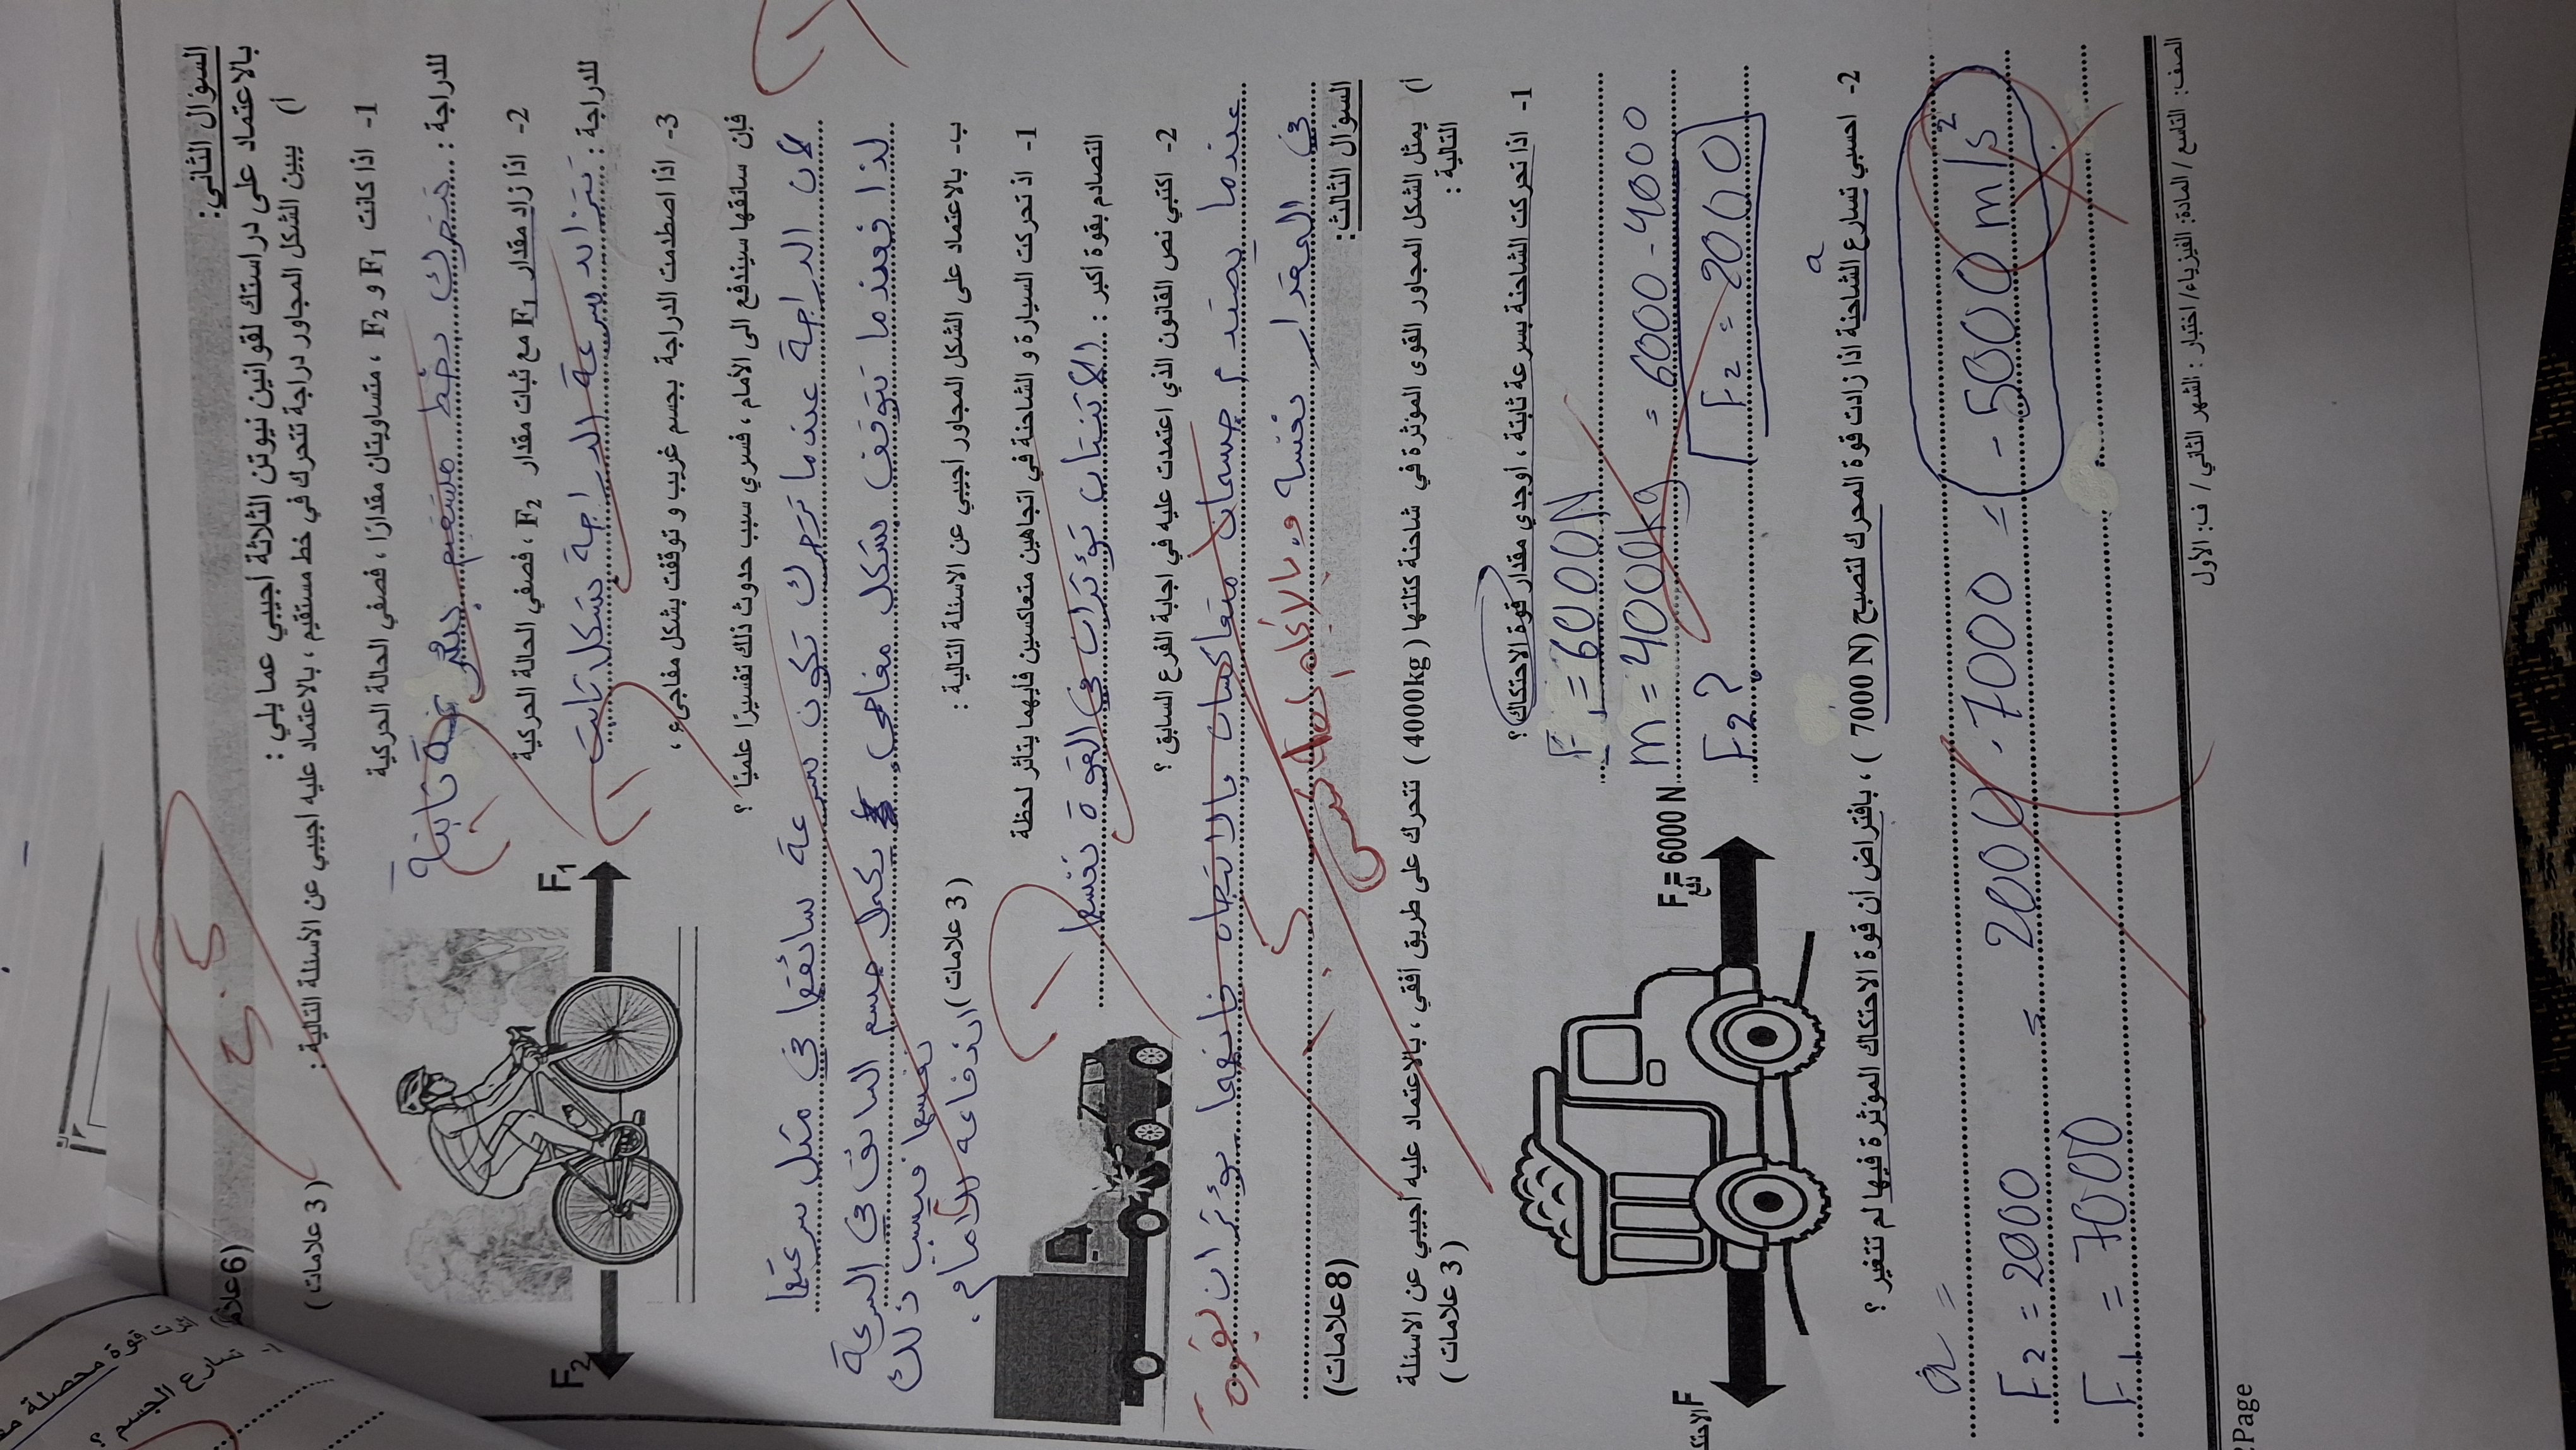 السؤال الثاني: (6علا
بالاعتماد على دراستك لقوانين نيوتن الثلاثة أجيبي عما يلي :
أ) يبين الشكل المجاور دراجة تتحرك في خط مستقيم ، بالاعتماد عليه اجيبي عن الأسئلة التالية : (3 علامات)
1- اذا كانت F1 و F2 ، متساويتان مقدارًا ، فصفي الحالة الحركية
للدراجة : تتحرك بخط مستقيم بسرعة ثابتة
2- اذا زاد مقدار F1 مع ثبات مقدار F2 ، فصفي الحالة الحركية
للدراجة : تتزايد سرعة الدراجة بشكل ثابت
F1
F2
3- اذا اصطدمت الدراجة بجسم غريب و توقفت بشكل مفاجىء ،
فإن سائقها سيندفع الى الأمام ، فسري سبب حدوث ذلك تفسيرًا علميًا ؟
لان الدراجة عندما تتحرك تكون سرعة سائقها في مثل سرعتها
لذا فعندما تتوقف بشكل مفاجئ يكمل جسم السائق في السرعة
نفسها فيسبب ذلك
اندفاعه للأمام.
ب- بالاعتماد على الشكل المجاور أجيبي عن الاسئلة التالية : (3 علامات)
1- اذ تحركت السيارة و الشاحنة في اتجاهين متعاكسين فأيهما يتأثر لحظة
التصادم بقوة أكبر : الاثنتان تؤثران في القوة نفسها
2- اكتبي نص القانون الذي اعتمدت عليه في اجابة الفرع السابق ؟
عندما يصتدم جسمان متعاكسان بالاتجاه فانهما يؤثران بقوة
في المقدار نفسه وبالاتجاه المعاكس
السؤال الثالث: (8علامات)
أ) يمثل الشكل المجاور القوى المؤثرة في شاحنة كتلتها (4000kg) تتحرك على طريق أفقي ، بالاعتماد عليه أجيبي عن الاسئلة
التالية : (3 علامات)
1- اذا تحركت الشاحنة بسرعة ثابتة ، أوجدي مقدار قوة الاحتكاك ؟
F1 = 6000N
m = 4000kg = 6000 - 4000
F2? F2 = 2000
F دفع = 6000 N
F الاحتك
2- احسبي تسارع الشاحنة اذا زادت قوة المحرك لتصبح (7000 N) ، بافتراض أن قوة الاحتكاك المؤثرة فيها لم تتغير ؟
a
a =
F2 = 2000 = 2000 - 7000 = -5000 m/s2
F1 = 7000
الصف: التاسع / المادة: الفيزياء/ اختبار : الشهر الثاني / ف: الأول
2Page
اثرت قوة محصلة مق
تسارع الجسم ؟